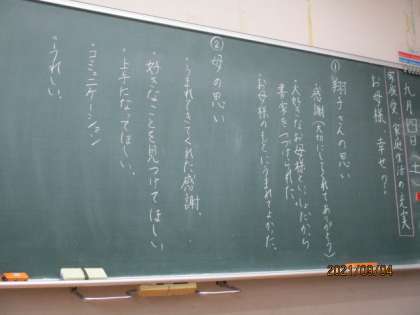 九 四日 土
家庭生活の充実
お母様 幸せ？
① 翔子さんの思い
感謝（大切にしてくれてありがとう）
・大好きなお母様といっしょだから
書字をつづけられた。
・お母様のもとにうまれてよかった。
② 母の思い
・うまれてきてくれた感謝。
・好きなことを見つけてほしい
・上手になってほしい。
・コミュニケーション
・うれしい。
2021/09/04